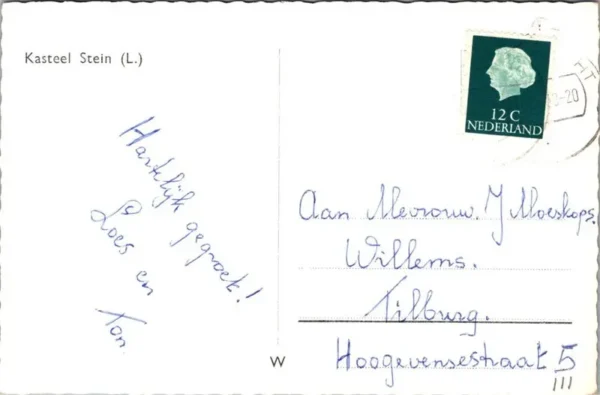 Kasteel Stein (L.)
Hartelijk gegroet!
Loes en
Ton.
12 C
NEDERLAND
HT
-20
Aan Mevrouw. J Moeskops.
Willems.
Tilburg.
Hoogevensestraat 5
III
W